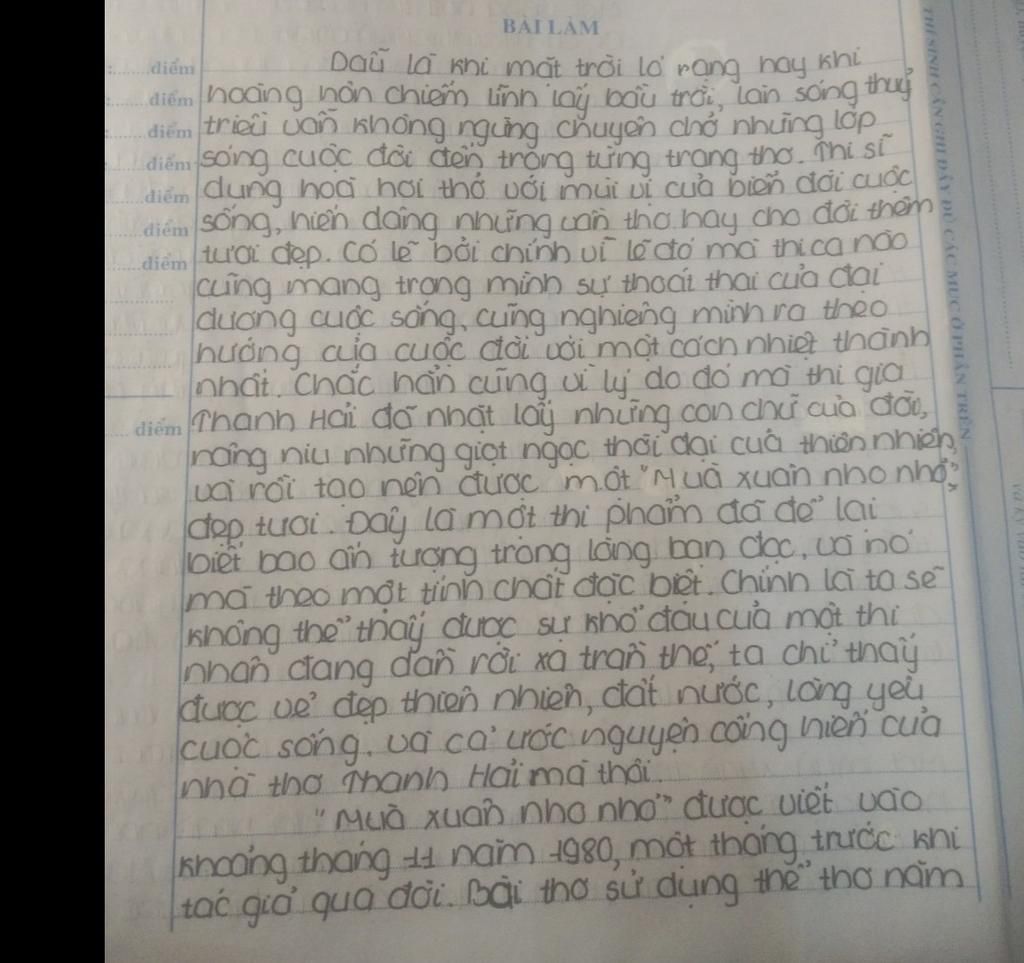 BÀI LÀM
điểm Dẫu là khi mặt trời ló rạng hay khi
điểm hoàng hôn chiếm lĩnh lấy bầu trời, làn sóng thuỷ
điểm triều vẫn không ngừng chuyên chở những lớp
điểm sóng cuộc đời đến trong từng trang thơ. Thi sĩ
điểm dung hoà hơi thở với mùi vị của biển đời cuộc
điểm sống, hiến dâng những vần thơ hay cho đời thêm
điểm tươi đẹp. Có lẽ bởi chính vì lẽ đó mà thi ca nào
cũng mang trong mình sự thoát thai của đại
dương cuộc sống, cũng nghiêng mình ra theo
hướng của cuộc đời với một cách nhiệt thành
nhất. Chắc hẳn cũng vì lý do đó mà thi gia
điểm Thanh Hải đã nhặt lấy những con chữ của đời,
nâng niu những giọt ngọc thời đại của thiên nhiên,
và rồi tạo nên được một "Mùa xuân nho nhỏ",
đẹp tươi. Đây là một thi phẩm đã để lại
biết bao ấn tượng trong lòng bạn đọc, và nó
mà theo một tính chất đặc biệt. Chính là ta sẽ
không thể thấy được sự khổ đau của một thi
nhân đang dần rời xa trần thế, ta chỉ thấy
được vẻ đẹp thiên nhiên, đất nước, lòng yêu
cuộc sống, và cả ước nguyện cống hiến của
nhà thơ Thanh Hải mà thôi.
"Mùa xuân nho nhỏ" được viết vào
khoảng tháng 11 năm 1980, một tháng trước khi
tác giả qua đời. Bài thơ sử dụng thể thơ năm
THÍ SINH CẦN GHI ĐẦY ĐỦ CÁC MỤC Ở PHẦN TRÊN